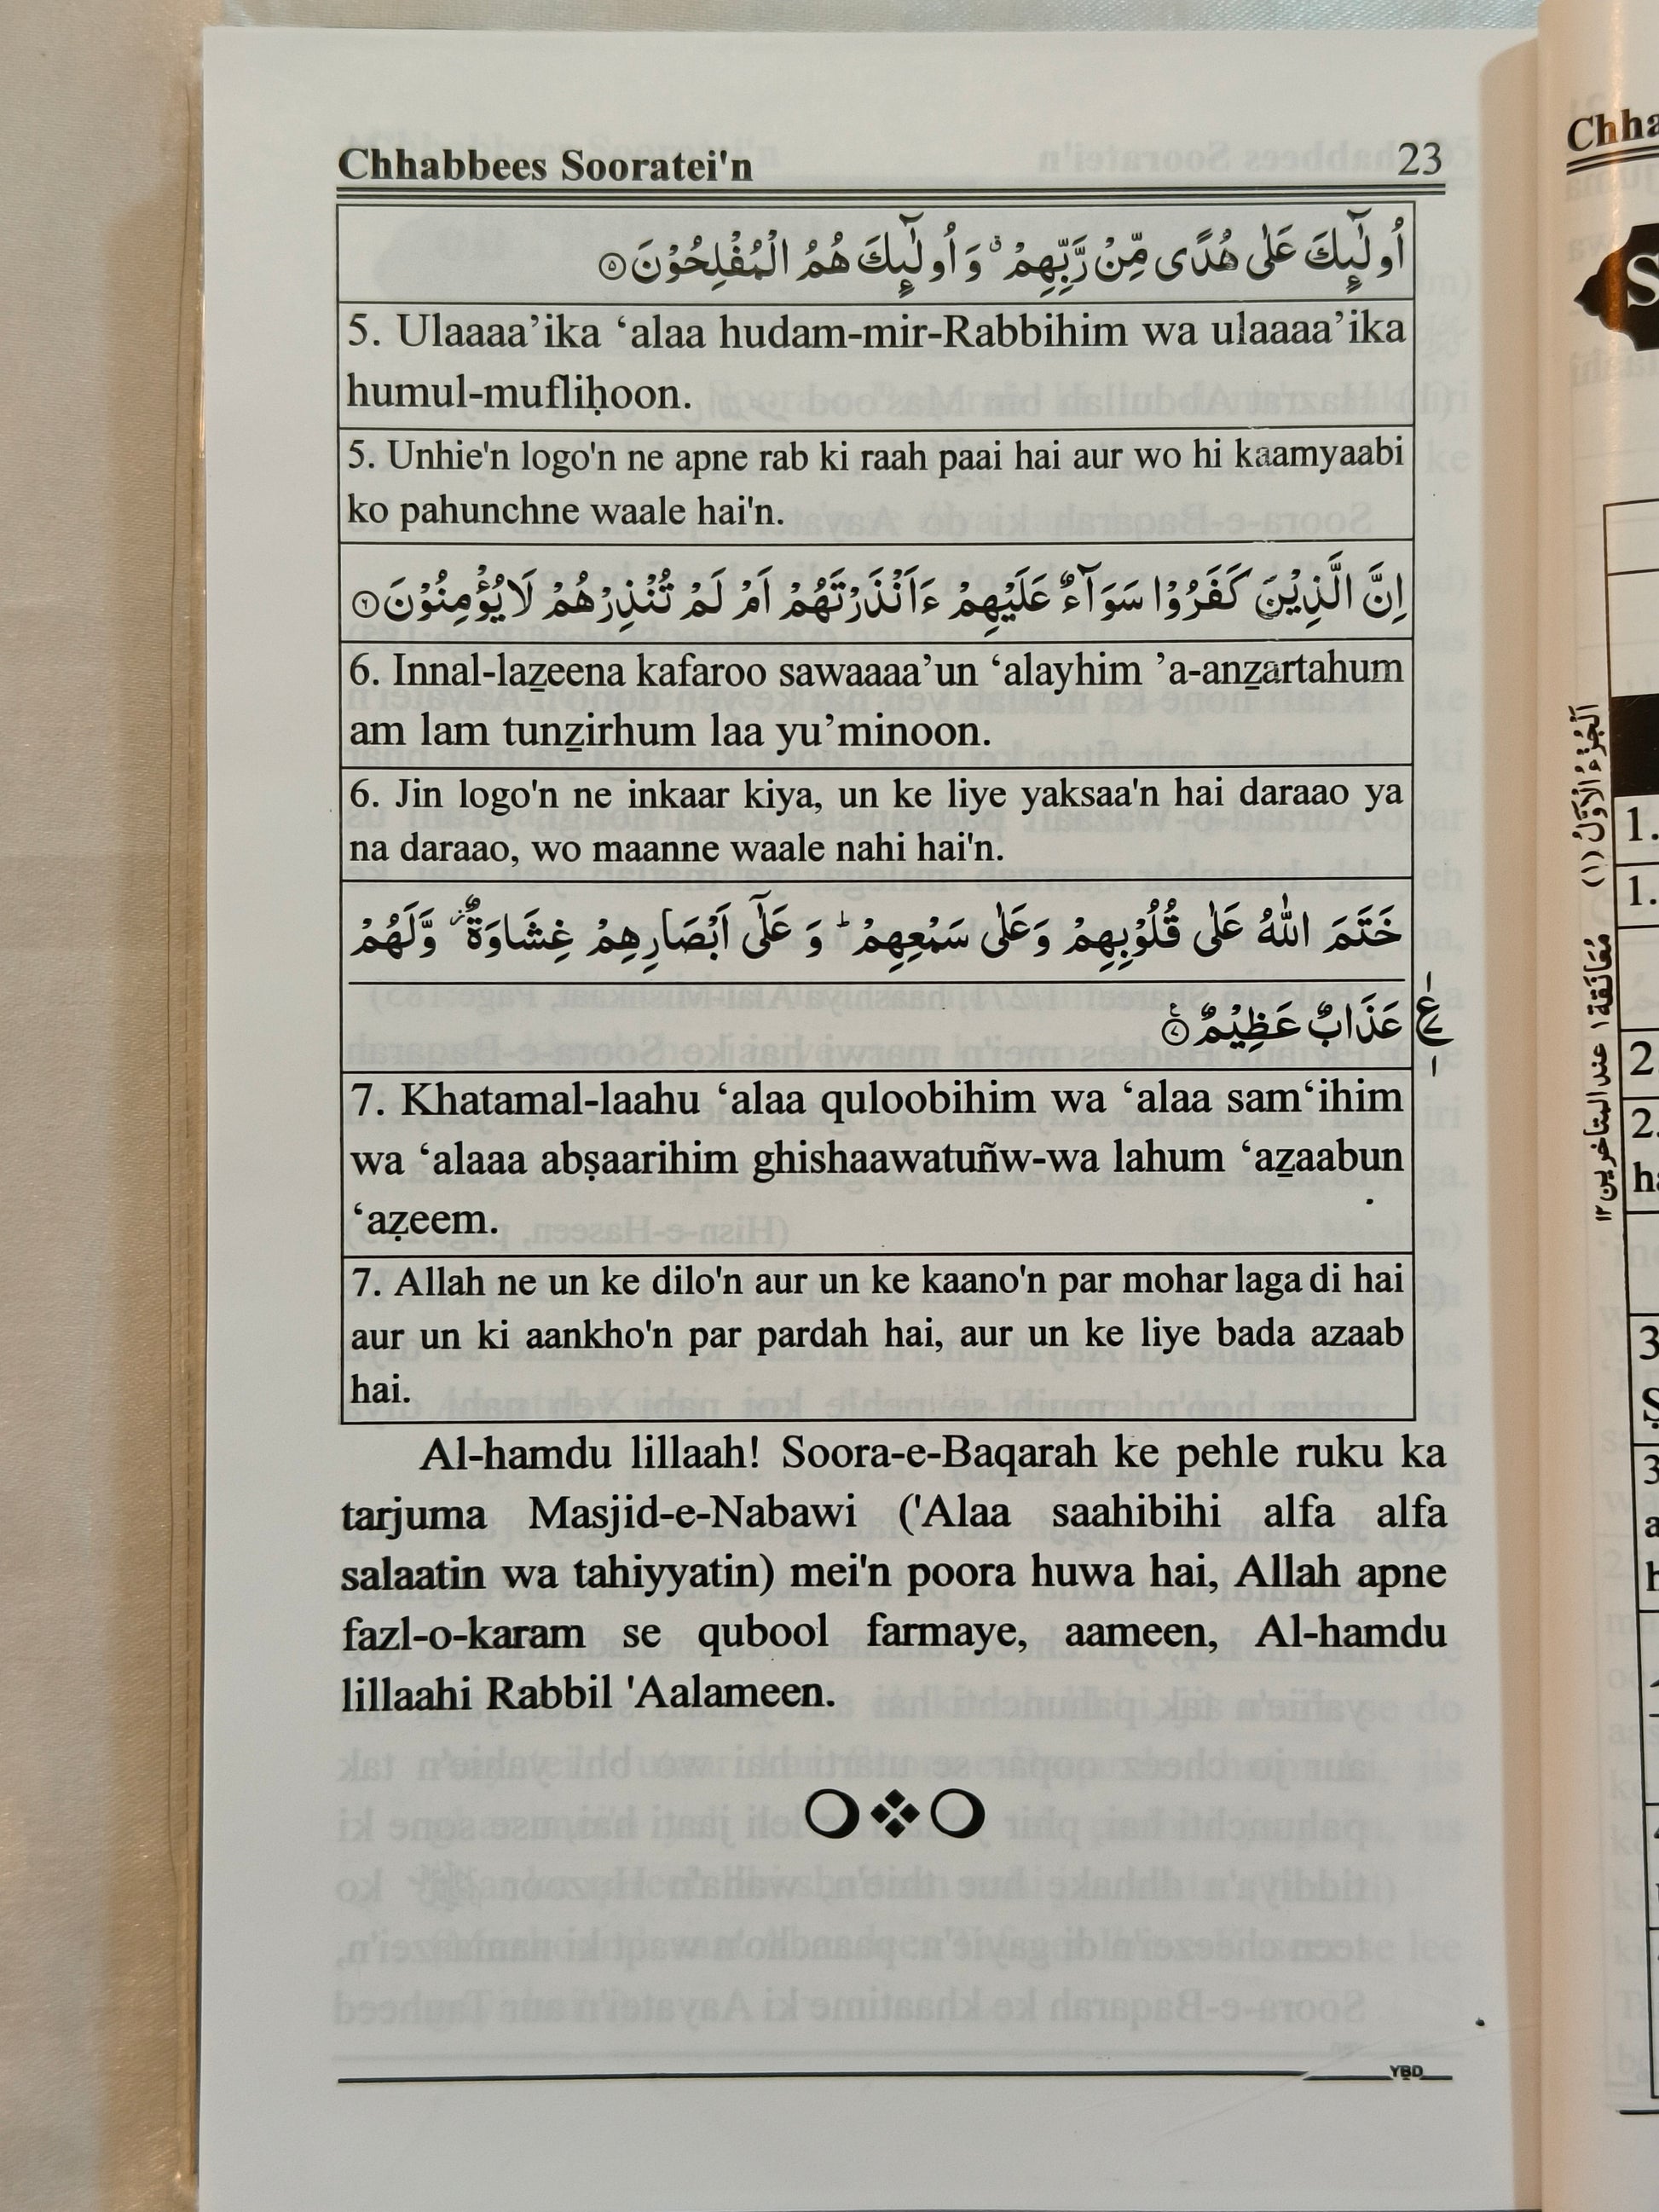 Chhabbees Sooratei'n 23
اُولٰٓئِكَ عَلٰى هُدًى مِّنْ رَّبِّهِمْ ۙ وَ اُولٰٓئِكَ هُمُ الْمُفْلِحُوْنَ ۝۵
5. Ulaaaa’ika ‘alaa hudam-mir-Rabbihim wa ulaaaa’ika
humul-mufliḥoon.
5. Unhie'n logo'n ne apne rab ki raah paai hai aur wo hi kaamyaabi
ko pahunchne waale hai'n.
اِنَّ الَّذِيْنَ كَفَرُوْا سَوَآءٌ عَلَيْهِمْ ءَاَنْذَرْتَهُمْ اَمْ لَمْ تُنْذِرْهُمْ لَا يُؤْمِنُوْنَ ۝۶
6. Innal-lazeena kafaroo sawaaaa’un ‘alayhim ’a-anzartahum
am lam tunzirhum laa yu’minoon.
6. Jin logo'n ne inkaar kiya, un ke liye yaksaa'n hai daraao ya
na daraao, wo maanne waale nahi hai'n.
خَتَمَ اللّٰهُ عَلٰى قُلُوْبِهِمْ وَعَلٰى سَمْعِهِمْ ؕ وَ عَلٰٓى اَبْصَارِهِمْ غِشَاوَةٌ ؗ وَّلَهُمْ
عَذَابٌ عَظِيْمٌ ۝۷
ع
7. Khatamal-laahu ‘alaa quloobihim wa ‘alaa sam‘ihim
wa ‘alaaa abṣaarihim ghishaawatuñw-wa lahum ‘azaabun
‘aẓeem.
7. Allah ne un ke dilo'n aur un ke kaano'n par mohar laga di hai
aur un ki aankho'n par pardah hai, aur un ke liye bada azaab
hai.
Al-hamdu lillaah! Soora-e-Baqarah ke pehle ruku ka
tarjuma Masjid-e-Nabawi ('Alaa saahibihi alfa alfa
salaatin wa tahiyyatin) mei'n poora huwa hai, Allah apne
fazl-o-karam se qubool farmaye, aameen, Al-hamdu
lillaahi Rabbil 'Aalameen.
YBD
اَلْجُزْءُ الْاَوَّلُ (۱)
مُعَانَقَة ۱ عند المتاخرين ۱۲
1.
1.
2
2.
3
3